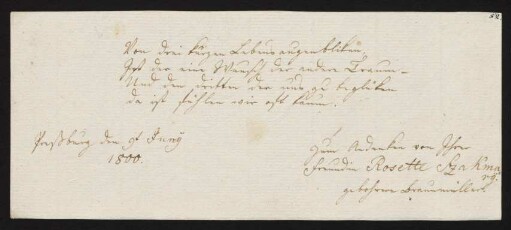 52.
Von drei kurzen Lebensaugenbliken,
Ist der eine Wunsch der andere Traum –
Und den dritten der uns zu beglüken
da ist fühlen wir oft kaum.
Preßburg den 9t Juny
1800.
Zum Andenken von Ihrer
Freundin Rosette Szakma
ry
gebohrne Braunmüller